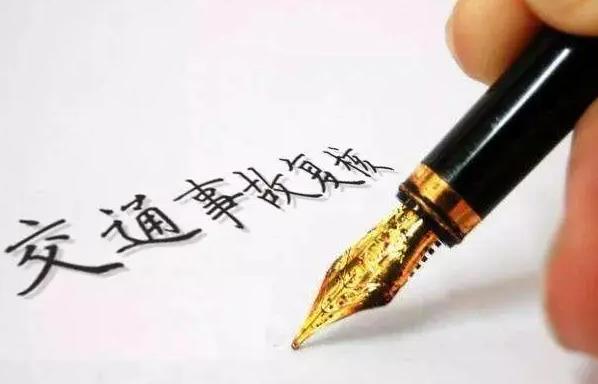 交通事故复核